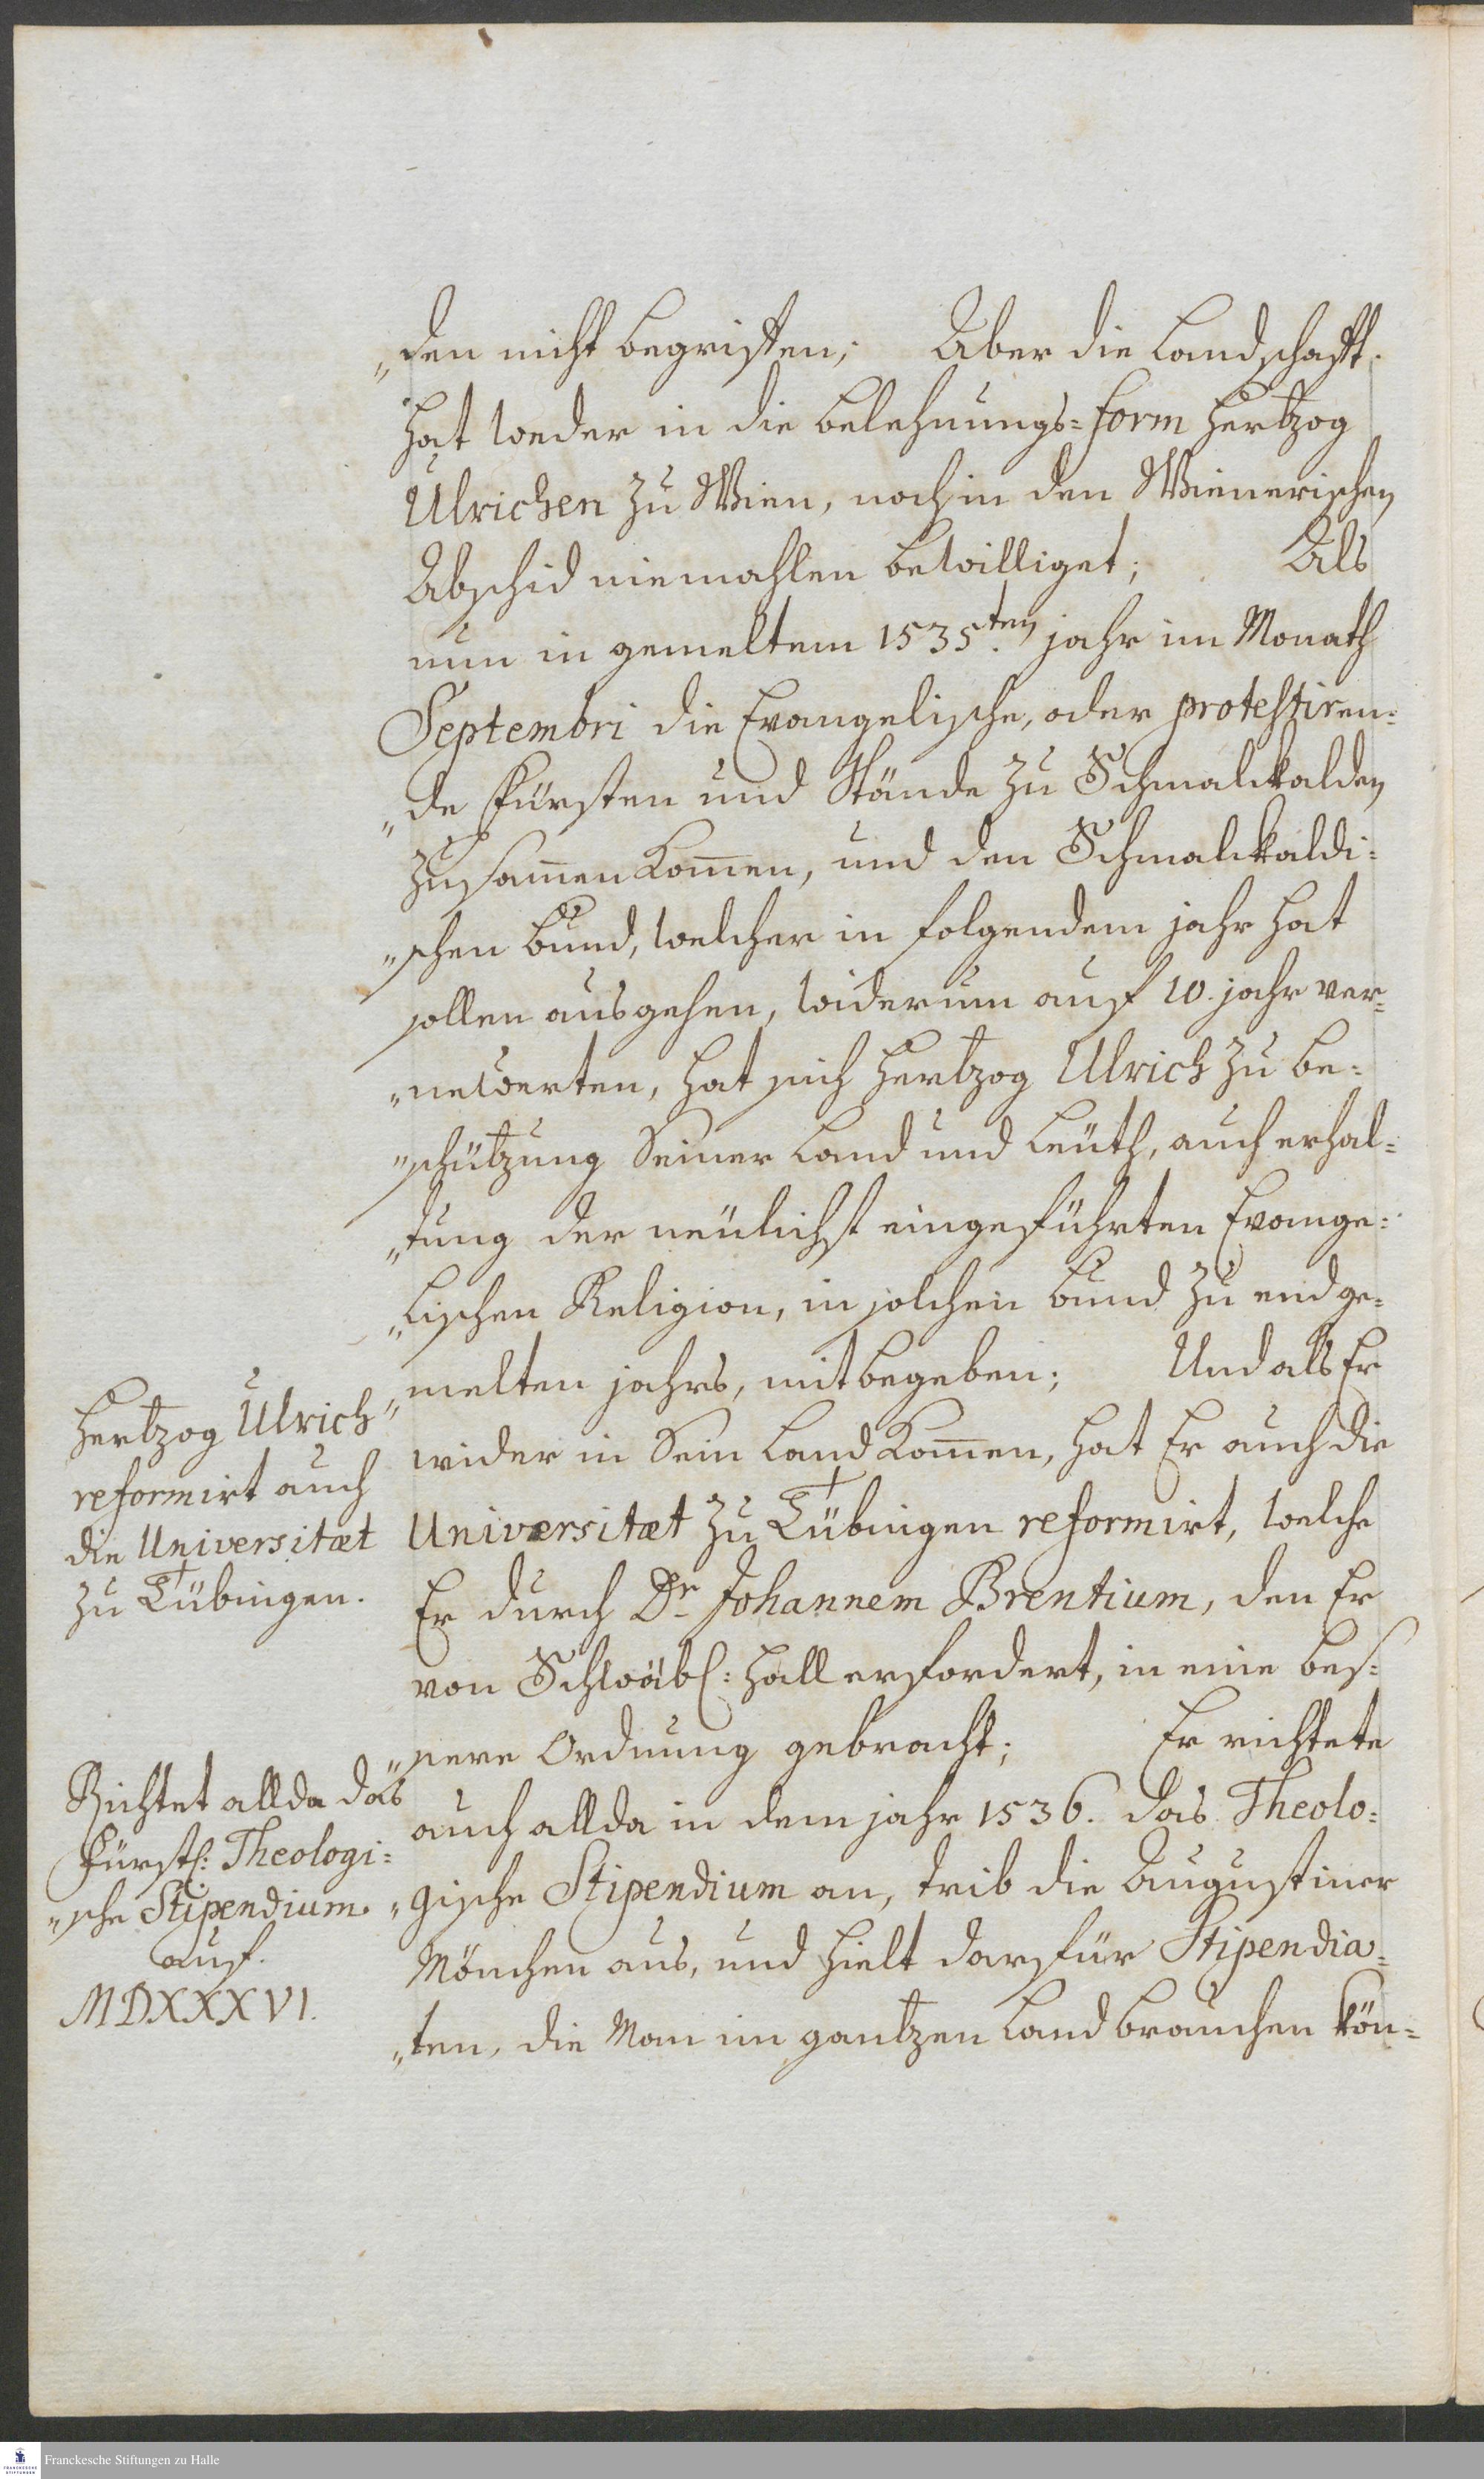 „den nicht begriffen; Aber die Landschafft.
hat weder in die Belehnungs=form Hertzog
Ulrichen zu Wien, noch in den Wienerischen
Abschid niemahlen bewilliget; Als
nun in gemeltem 1535.ten jahr im Monath
Septembri die Evangelische, oder protestiren=
„de Fürsten und Stände zu Schmalckalden
zusam̅en kom̅en, und den Schmalckaldi=
„schen Bund, welcher in folgendem jahr hat
sollen ausgehen, widerum auf 10. jahr ver=
„newerten, hat sich Hertzog Ulrich zu be=
„schützung Seiner Land und Leüth, auch erhal=
„tung der neülichst eingeführten Evange=
„lischen Religion, in solchen Bund zu end ge=
„melten jahrs, mitbegeben; Und als Er
wider in Sein Land kom̅en, hat Er auch die
Universitæt zu Tübingen reformirt, welche
Er durch Dr. Johannem Brentium, den Er
von Schwäbl: Hall erfordert, in eine bes=
„sere Ordnung gebracht; Er richtete
auch allda in dem jahr 1536. das Theolo=
„gische Stipendium an, trib die Augustiner
Mönchen aus, und hielt darfür Stipendia=
„ten, die Man im gantzen Land brauchen kön=
Hertzog Ulrich
reformirt auch
die Universitæt
zu Tübingen.
Richtet allda das
Fürstl: Theologi=
„sche Stipendium
auf.
MDXXXVI.
Franckesche Stiftungen zu Halle